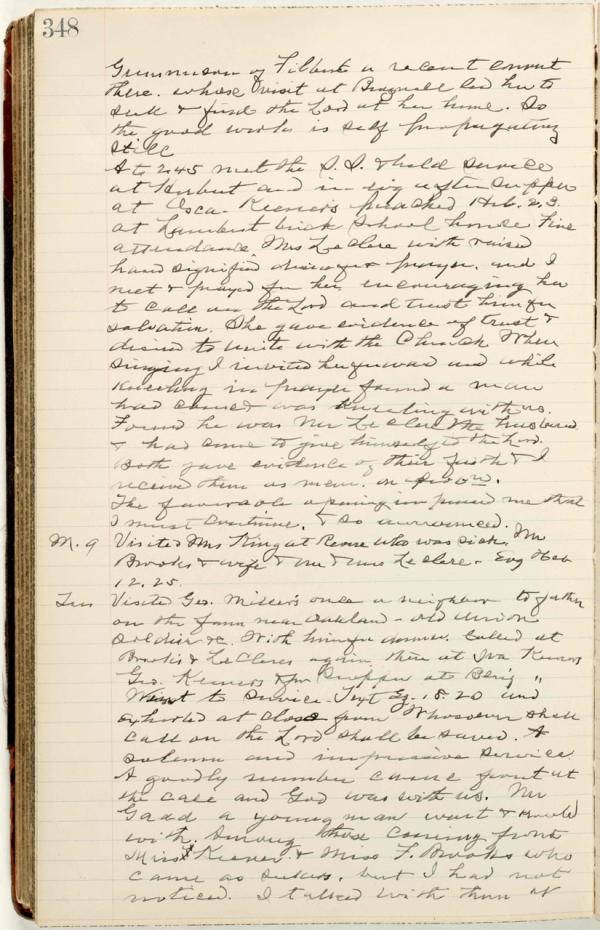 348
of Filbert a recent convert
there. whose visit at Bagnall led her to
seek & find the Lord at her home. So
the good work is self propagating
still
At 2.45 met the S.S. & held service
at and in evg after supper
at Oscar Keeners preached Heb. 2.3.
at Lambert brick School house. Fine
attendance Mrs LeClere with raised
hand signified desire for prayer. and I
met & prayed for her, encouraging her
to call on the Lord and trust him for
salvation. She gave evidence of trust &
desired to unite with the Church. When
singing I invited her forward and while
kneeling in prayer found a man
had come & was kneeling with us.
Found he was Mr LeClere the husband
& had come to give himself to the Lord.
Both gave evidence of their faith & I
received them as mem. on
The favorable opening impressed me that
I must continue, & so announced.
M. 9 Visited Mrs King at who was sick, Mr
Brooks & wife & Mr & Mrs LeClere - Evg Heb
12.25.
Tues Visited Geo. Miller's once a neighbor to father
on the farm near Oakland - old Union
soldier &c. With him for dinner. Called at
Brooks & LeCleres again, then at Iva Keeners
Geo. Keeners & for Supper at Benj "
Went to Service. Text Ez. 18.20 and
exhorted at close from Whosoever shall
call on the Lord shall be saved. A
solemn and impressive service.
A goodly number came front at
the call and God was with us. Mr
Gadd a young man went &
with. Among those coming front
Miss Keener & Miss F. Brooks who
came as seekers, but I had not
noticed. I talked with them at